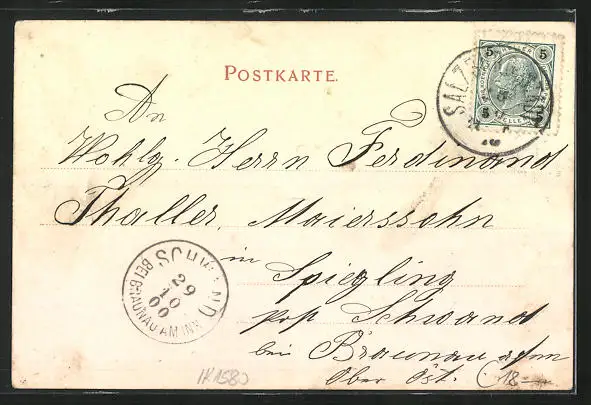 POSTKARTE.
5 5
HELLER
5 5
SALZ
An
Wohlg. Herrn Ferdinand
Thaller, Maierssohn
in
Spiegling
pop Schwand
bei Braunau a/Inn
Ober Öst.
SCHWAND
29
10
00
BEI BRAUNAU AM INN
1K1580
18.—